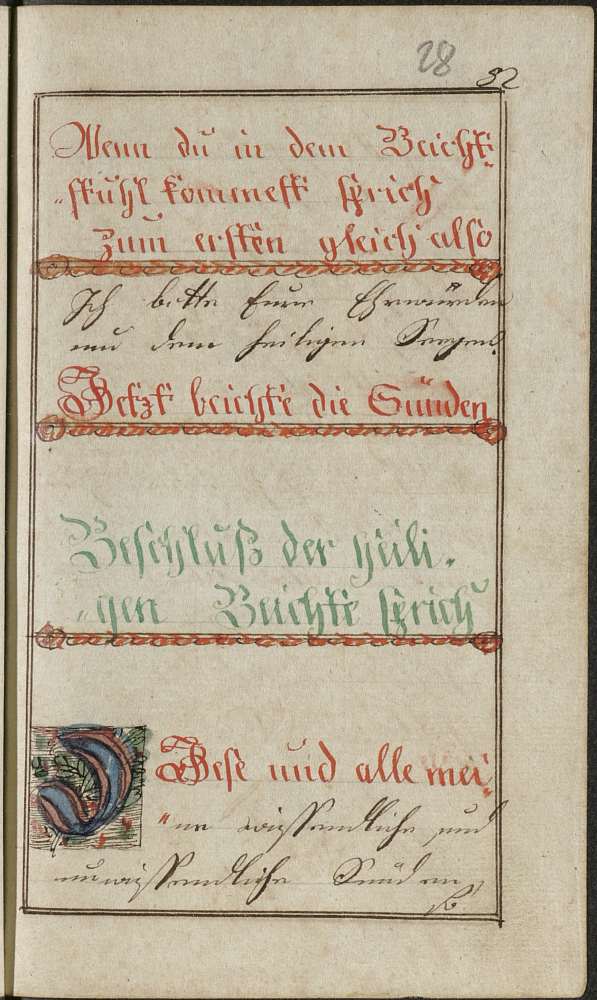 28
82
Wenn du in dem Beicht¬
„stuhl kommest sprich
zum ersten gleich also
Ich bitte Euer Ehrwürden
um den heiligen Seegen.
Jetzt beichte die Sünden
Beschluß der heili¬
„gen Beichte sprich
Diese und alle mei¬
„ne wissendliche und
unwissendliche Sünden